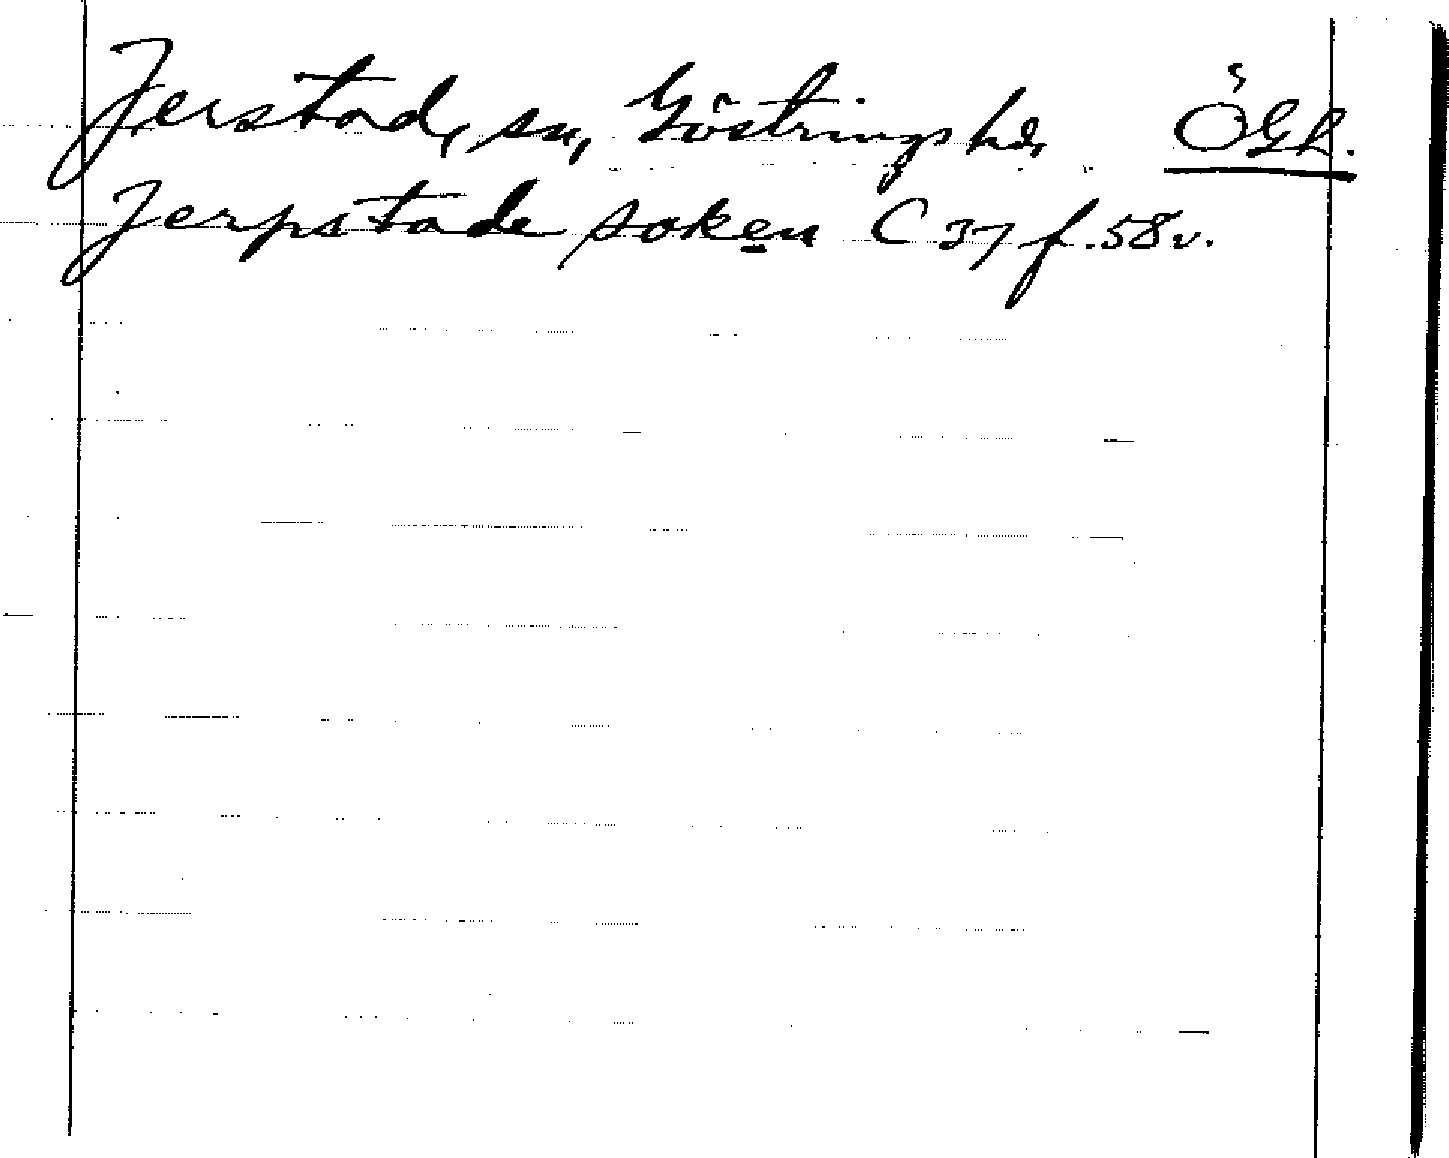 Jerstad, sn, Göstrings hd, ÖGL.
Jerpstade soken C 37 f. 58 v.